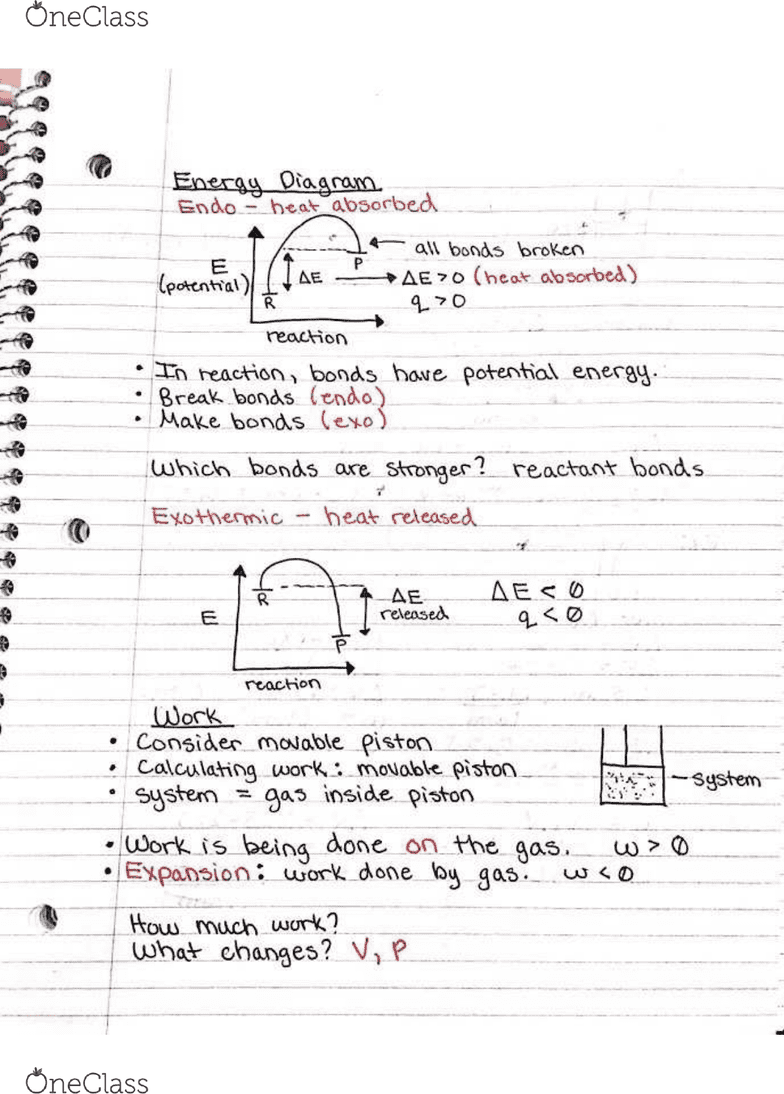 OneClass
Energy Diagram
Endo - heat absorbed
all bonds broken
P
E
(potential)
ΔE
ΔE > 0 (heat absorbed)
R
q > 0
reaction
• In reaction, bonds have potential energy.
• Break bonds (endo)
• Make bonds (exo)
Which bonds are stronger? reactant bonds
Exothermic - heat released
R
ΔE
released
ΔE < 0
q < 0
E
P
reaction
Work
• Consider movable piston
• Calculating work: movable piston
• system = gas inside piston
system
• Work is being done on the gas. w > 0
• Expansion: work done by gas. w < 0
How much work?
What changes? V, P
OneClass